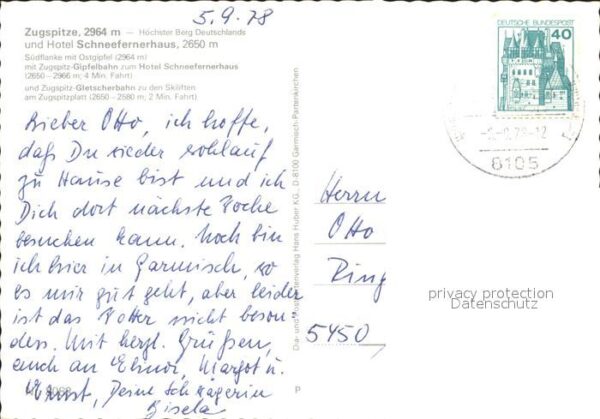 5.9.78
Zugspitze, 2964 m — Höchster Berg Deutschlands
und Hotel Schneefernerhaus, 2650 m
Südflanke mit Ostgipfel (2964 m)
mit Zugspitz-Gipfelbahn zum Hotel Schneefernerhaus
(2650 – 2966 m; 4 Min. Fahrt)
und Zugspitz-Gletscherbahn zu den Skiliften
am Zugspitzplatt (2650 – 2580 m; 2 Min. Fahrt)
Lieber Otto, ich hoffe,
daß Du wieder wohlauf
zu Hause bist und ich
Dich dort nächste Woche
besuchen kann. Noch bin
ich hier in Garmisch, wo
es mir gut geht, aber leider
ist das Wetter nicht beson-
ders. Mit herzl. Grüßen,
auch an Elinor, Margot u.
Ernst, Deine Schwägerin
Gisela
Dia- und Postkartenverlag Hans Huber KG., D-8100 Garmisch-Partenkirchen
P
DEUTSCHE BUNDESPOST
40
8105
Herrn
Otto
Ring
5450
privacy protection
Datenschutz